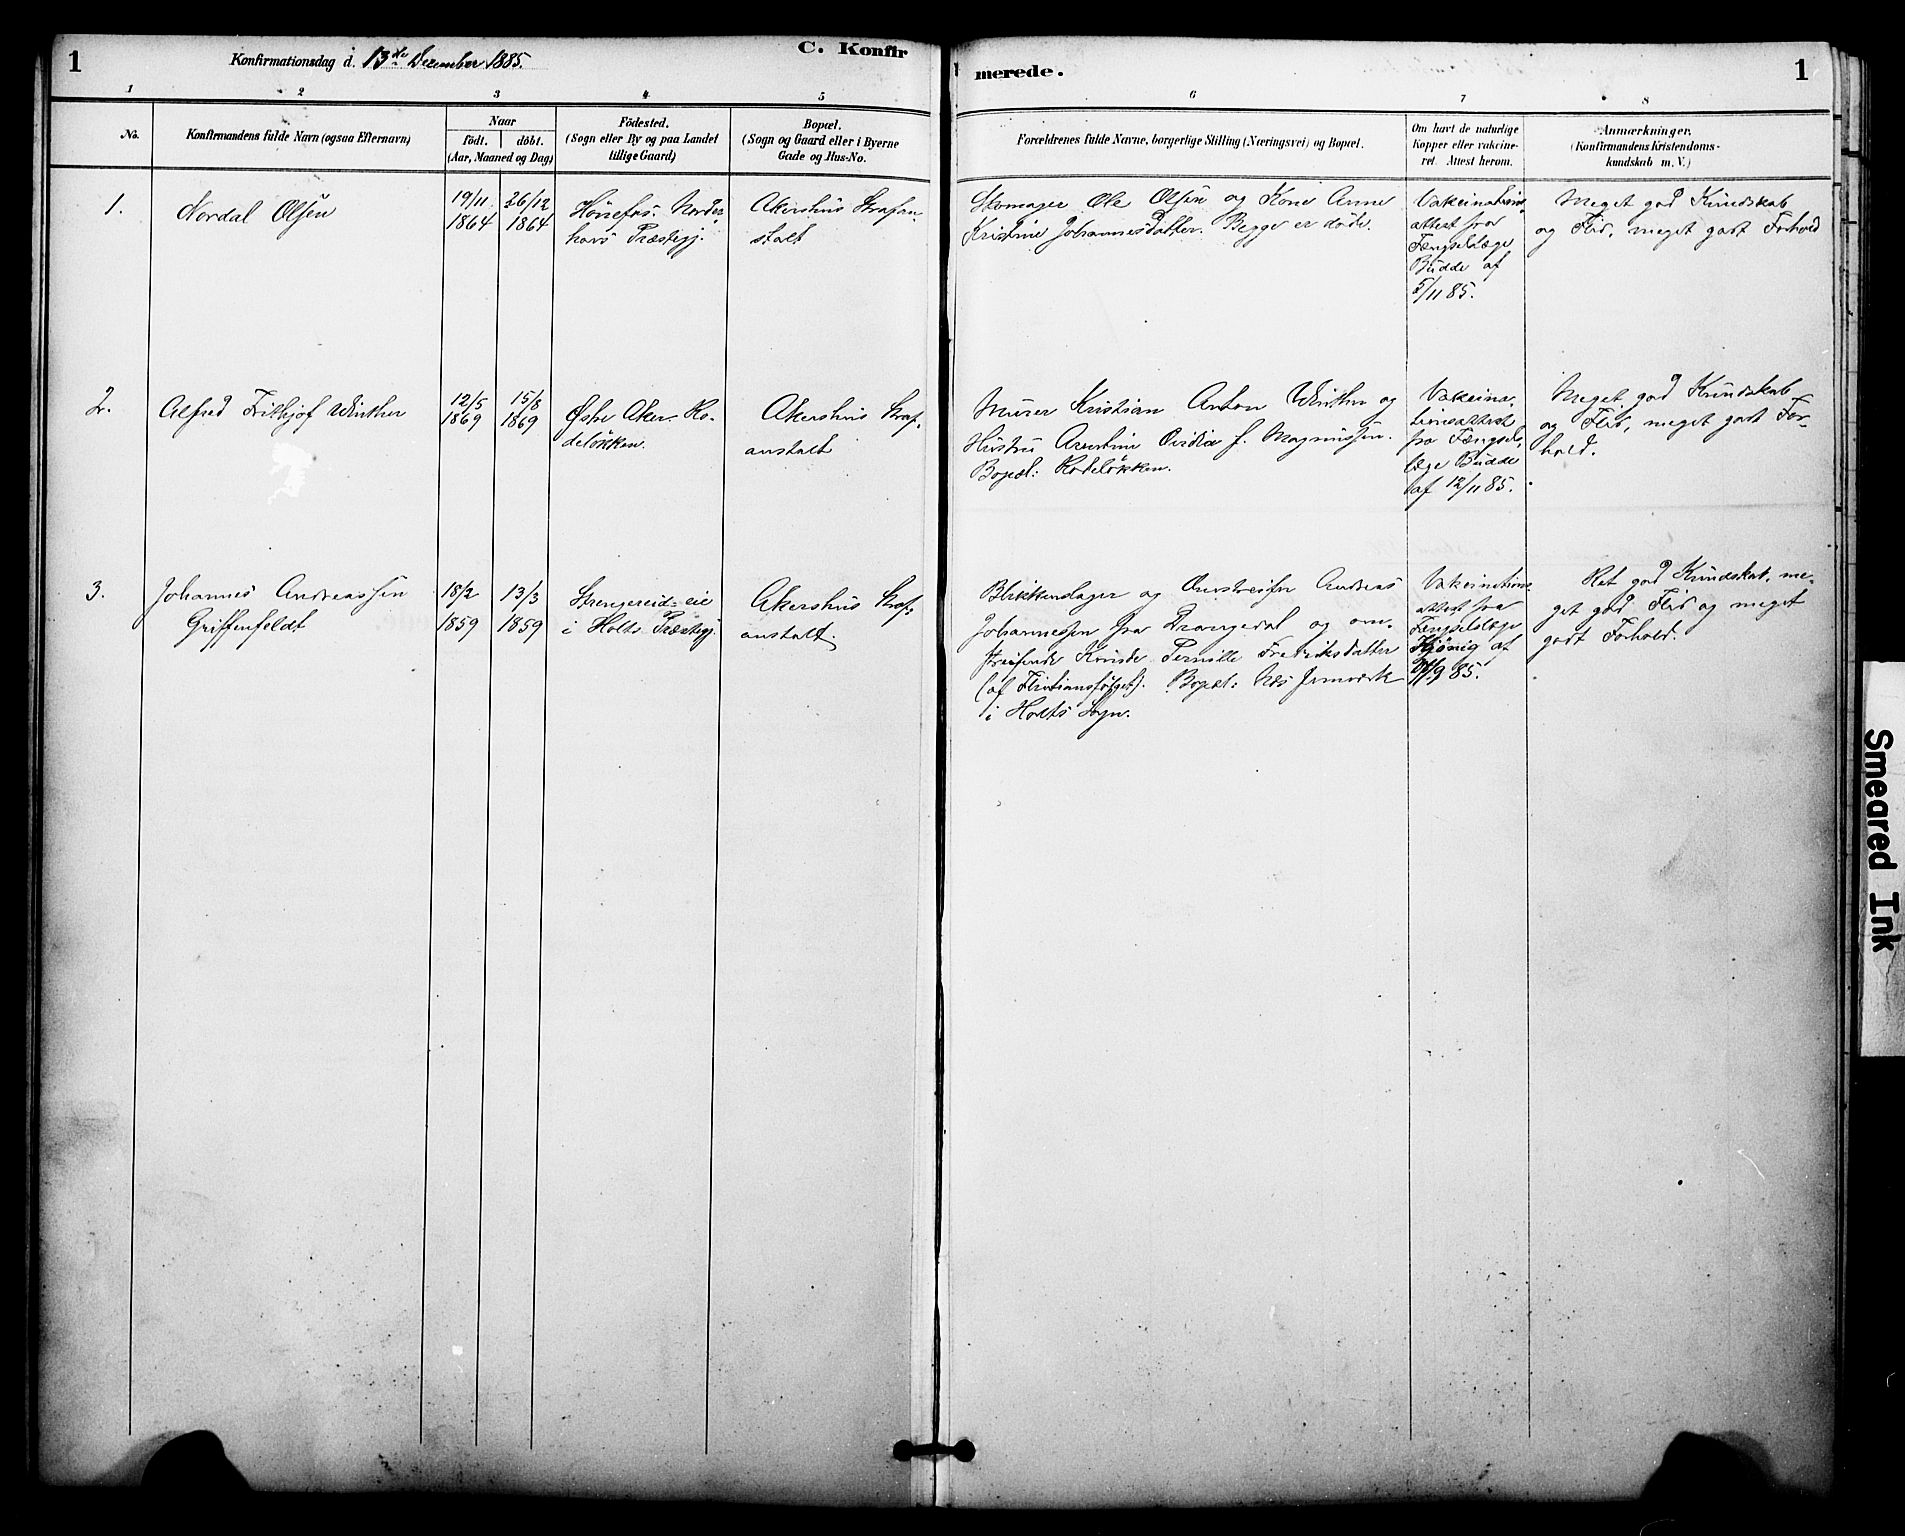 1
Konfirmationsdag d. 13de December 1885.
C. Konfir
merede.
1
1 2 3 4 5 6 7 8
No.
Konfirmandens fulde Navn (ogsaa Efternavn)
Naar
födt. döbt.
(Aar, Maaned og Dag)
Födested.
(Sogn eller By og paa Landet
tillige Gaard)
Bopæl.
(Sogn og Gaard eller i Byerne
Gade og Hus-No.
Forældrenes fulde Navne, borgerlige Stilling (Næringsvei) og Bopæl.
Om havt de naturlige
Kopper eller vakcine-
ret. Attest herom.
Anmærkninger.
(Konfirmandens Kristendoms-
kundskab m. V.)
1.
Nordal Olsen
19/11
1864
26/12
1864
Hönefos. Norder-
hovs Præstegj.
Akershus Strafan-
stalt
Skomager Ole Olsen og Kone Anne
Kristine Johannesdatter. Begge er döde.
Vakcinations-
attest fra
Fængselslæge
Budde af
5/11 85.
Meget god Kundskab
og Flid, meget godt Forhold
2.
Alfred Frithjof Winther
12/5
1869
15/8
1869
Østre Aker. Ro-
delökken.
Akershus Straf-
anstalt
Murer Kristian Anton Winther og
Hustru Arentine Ovidia f. Magnussen.
Bopæl: Rodelökken.
Vakcina-
tionsattest
fra Fængsels-
læge Budde
af 12/11 85.
Meget god Kundskab
og Flid, meget godt For-
hold.
3.
Johannes Andreassen
Griffenfeldt
18/2
1859
13/3
1859
Strengereid-eie
i Holts Præstegj.
Akershus Straf-
anstalt.
Blikkenslager og Omstreifer Andreas
Johannessen fra Drangedal og om-
streifende Kvinde Pernille Fredriksdatter
(af Flintiansfölget). Bopæl: Næs Jernværk
i Holts Sogn.
Vakcinations-
attest fra
Fængselslæge
af
/9 85.
Ret god Kundskab, me-
get god Flid og meget
godt Forhold.
Smeared Ink